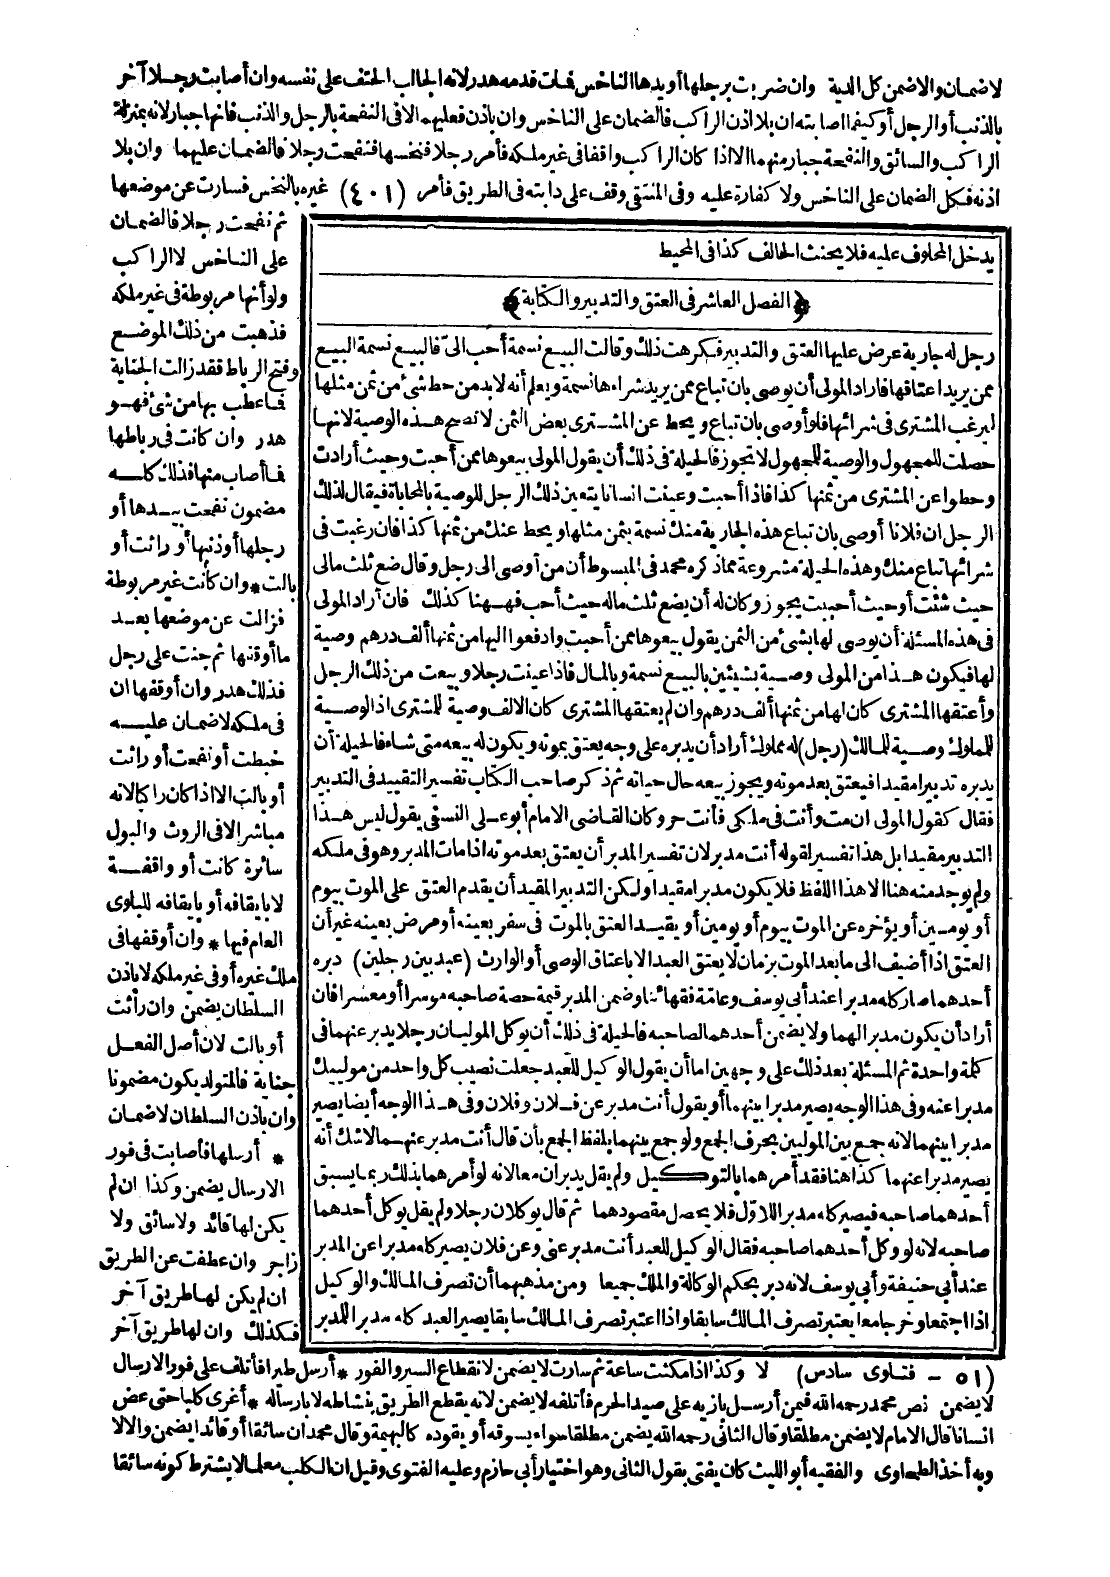 لاضمان والاضمن كل الدية وان ضربت برجلها أويدها الناخس فمات فدمه هدر لانه الجالب الحتف على نفسه وان أصابت رجلا آخر
بالذنب أو الرجل أو كيفما اصابته ان بلا اذن الراكب فالضمان على الناخس وان باذن فعليهما الا فى النفحة بالرجل والذنب فانها جبار لانه بمنزلة
الراكب والسائق والنفحة جبار منهما الا اذا كان الراكب واقفا فى غير ملكه فأمر رجلا فنخسها فنفحت رجلا فالضمان عليهما وان بلا
اذنه فكل الضمان على الناخس ولا كفارة عليه وفى المنتقى وقف على دابته فى الطريق فأمر (٤٠١) غيره بالنخس فسارت عن موضعها
ثم نفحت رجلا فالضمان
على الناخس لا الراكب
ولو أنها مربوطة فى غير ملكه
فذهبت من ذلك الموضع
وفتح الرباط فقد زالت الجناية
فما عطب بها من شئ فهو
هدر وان كانت فى رباطها
فما أصاب منها فذلك كله
مضمون نفحت بيدها أو
رجلها أو ذنبها أو راثت أو
بالت * وان كانت غير مربوطة
فزالت عن موضعها بعد
ما أوقفها ثم جنت على رجل
فذلك هدر وان أوقفها ان
فى ملكه لاضمان عليه
خبطت أو نفحت أو راثت
أو بالت الا اذا كان راكبا لانه
مباشر الا فى الروث والبول
سائرة كانت أو واقفة
لا بايقافه أو بايقافه للبلوى
العام فيها * وان أوقفها فى
ملك غيره أو فى غير ملكه لا باذن
السلطان يضمن وان راثت
أو بالت لان أصل الفعل
جناية فالمتولد يكون مضمونا
وان باذن السلطان لاضمان
* أرسلها فأصابت فى فور
الارسال يضمن وكذا ان لم
يكن لها قائد ولا سائق ولا
زاجر وان عطفت عن الطريق
ان لم يكن لها طريق آخر
فكذلك وان لها طريق آخر
يدخل المحلوف عليه فلا يحنث الحالف كذا فى المحيط
﴿الفصل العاشر فى العتق والتدبير والكتابة﴾
رجل له جارية عرض عليها العتق والتدبير فكرهت ذلك وقالت البيع نسمة أحب الىّ فالبيع نسمة البيع
ممن يريد اعتاقها فاراد المولى أن يوصى بان تباع ممن يريد شراءها نسمة ويعلم أنه لابد من حط شئ من ثمن مثلها
ليرغب المشترى فى شرائها فلو أوصى بان تباع ويحط عن المشترى بعض الثمن لا تصح هذه الوصية لانها
حصلت للمجهول والوصية للمجهول لا تجوز فالحيلة فى ذلك أن يقول المولى بيعوها ممن أحبت وحيث أرادت
وحطوا عن المشترى من ثمنها كذا فاذا أحبت وعينت انسانا يتعين ذلك الرجل للوصية بالمحاباة فيقال لذلك
الرجل ان فلانا أوصى بان تباع هذه الجارية منك نسمة بثمن مثلها ويحط عنك من ثمنها كذا فان رغبت فى
شرائها تباع منك وهذه الحيلة مشروعة مما ذكره محمد فى المبسوط أن من أوصى الى رجل وقال ضع ثلث مالى
حيث شئت أو حيث أحببت يجوز وكان له أن يضع ثلث ماله حيث أحب فههنا كذلك فان أراد المولى
فى هذه المسئلة أن يوصى لها بشئ من الثمن يقول بيعوها ممن أحبت وادفعوا اليها من ثمنها ألف درهم وصية
لها فيكون هذا من المولى وصية بشيئين بالبيع نسمة وبالمال فاذا عينت رجلا وبيعت من ذلك الرجل
وأعتقها المشترى كان لها من ثمنها ألف درهم وان لم يعتقها المشترى كان الالف وصية للمشترى اذ الوصية
للمملوك وصية للمالك (رجل) له مملوك أراد أن يدبره على وجه يعتق بموته ويكون له بيعه متى شاء فالحيلة أن
يدبره تدبيرا مقيدا فيعتق بعد موته ويجوز بيعه حال حياته ثم ذكر صاحب الكتاب تفسير التقييد فى التدبير
فقال كقول المولى ان مت وأنت فى ملكى فأنت حر وكان القاضى الامام أبو على النسفى يقول ليس هذا
التدبير مقيدا بل هذا تفسير لقوله أنت مدبر لان تفسير المدبر أن يعتق بعد موته اذا مات المدبر وهو فى ملكه
ولم يوجد منه هنا الا هذا اللفظ فلا يكون مدبرا مقيدا ولكن التدبير المقيد أن يقدم العتق على الموت بيوم
أو يومين أو يؤخره عن الموت بيوم أو يومين أو يقيد العتق بالموت فى سفر بعينه أو مرض بعينه غير أن
العتق اذا أضيف الى ما بعد الموت بزمان لا يعتق العبد الا باعتاق الوصى أو الوارث (عبد بين رجلين) دبره
أحدهما صار كله مدبرا عند أبى يوسف وعامة فقهائنا وضمن المدبر قيمة حصة صاحبه موسرا أو معسرا فان
أراد أن يكون مدبرا لهما ولا يضمن أحدهما لصاحبه فالحيلة فى ذلك أن يوكل الموليان رجلا يدبر عنهما فى
كلمة واحدة ثم المسئلة بعد ذلك على وجهين اما أن يقول الوكيل للعبد جعلت نصيب كل واحد من موليك
مدبرا عنه وفى هذا الوجه يصير مدبرا بينهما أو يقول أنت مدبر عن فلان وفلان وفى هذا الوجه أيضا يصير
مدبرا بينهما لانه جمع بين الموليين بحرف الجمع ولو جمع بينهما بلفظ الجمع بأن قال أنت مدبر عنهما لاشك أنه
يصير مدبرا عنهما كذا هنا فقد أمرهما بالتوكيل ولم يقل يدبران معا لانه لو أمرهما بذلك ربما يسبق
أحدهما صاحبه فيصير كله مدبرا للاول فلا يحصل مقصودهما ثم قال يوكلان رجلا ولم يقل يوكل أحدهما
صاحبه لانه لو وكل أحدهما صاحبه فقال الوكيل للعبد أنت مدبر عنى وعن فلان يصير كله مدبرا عن المدبر
عند أبى حنيفة وأبى يوسف لانه دبر بحكم الوكالة والملك جميعا ومن مذهبهما أن تصرف المالك والوكيل
اذا اجتمعا وخرجا معا يعتبر تصرف المالك سابقا واذا اعتبر تصرف المالك سابقا يصير العبد كله مدبرا للمدبر
(٥١ - فتاوى سادس) لا وكذا اذا مكثت ساعة ثم سارت لا يضمن لانقطاع السير والفور * أرسل طيرا فأتلف على فور الارسال
لا يضمن نص محمد رحمه الله فيمن أرسل بازيه على صيد الحرم فأتلفه لا يضمن لانه يقطع الطريق بنشاطه لا بارساله * أغرى كلبا حتى عض
انسانا قال الامام لا يضمن مطلقا وقال الثانى رحمه الله يضمن مطلقا سواء يسوقه أو يقوده كالبهيمة وقال محمد ان سائقا أو قائدا يضمن والا لا
وبه أخذ الطحاوى والفقيه أبو الليث كان يفتى بقول الثانى وهو اختيار أبى حازم وعليه الفتوى وقيل ان الكلب معلما لا يشترط كونه سائقا